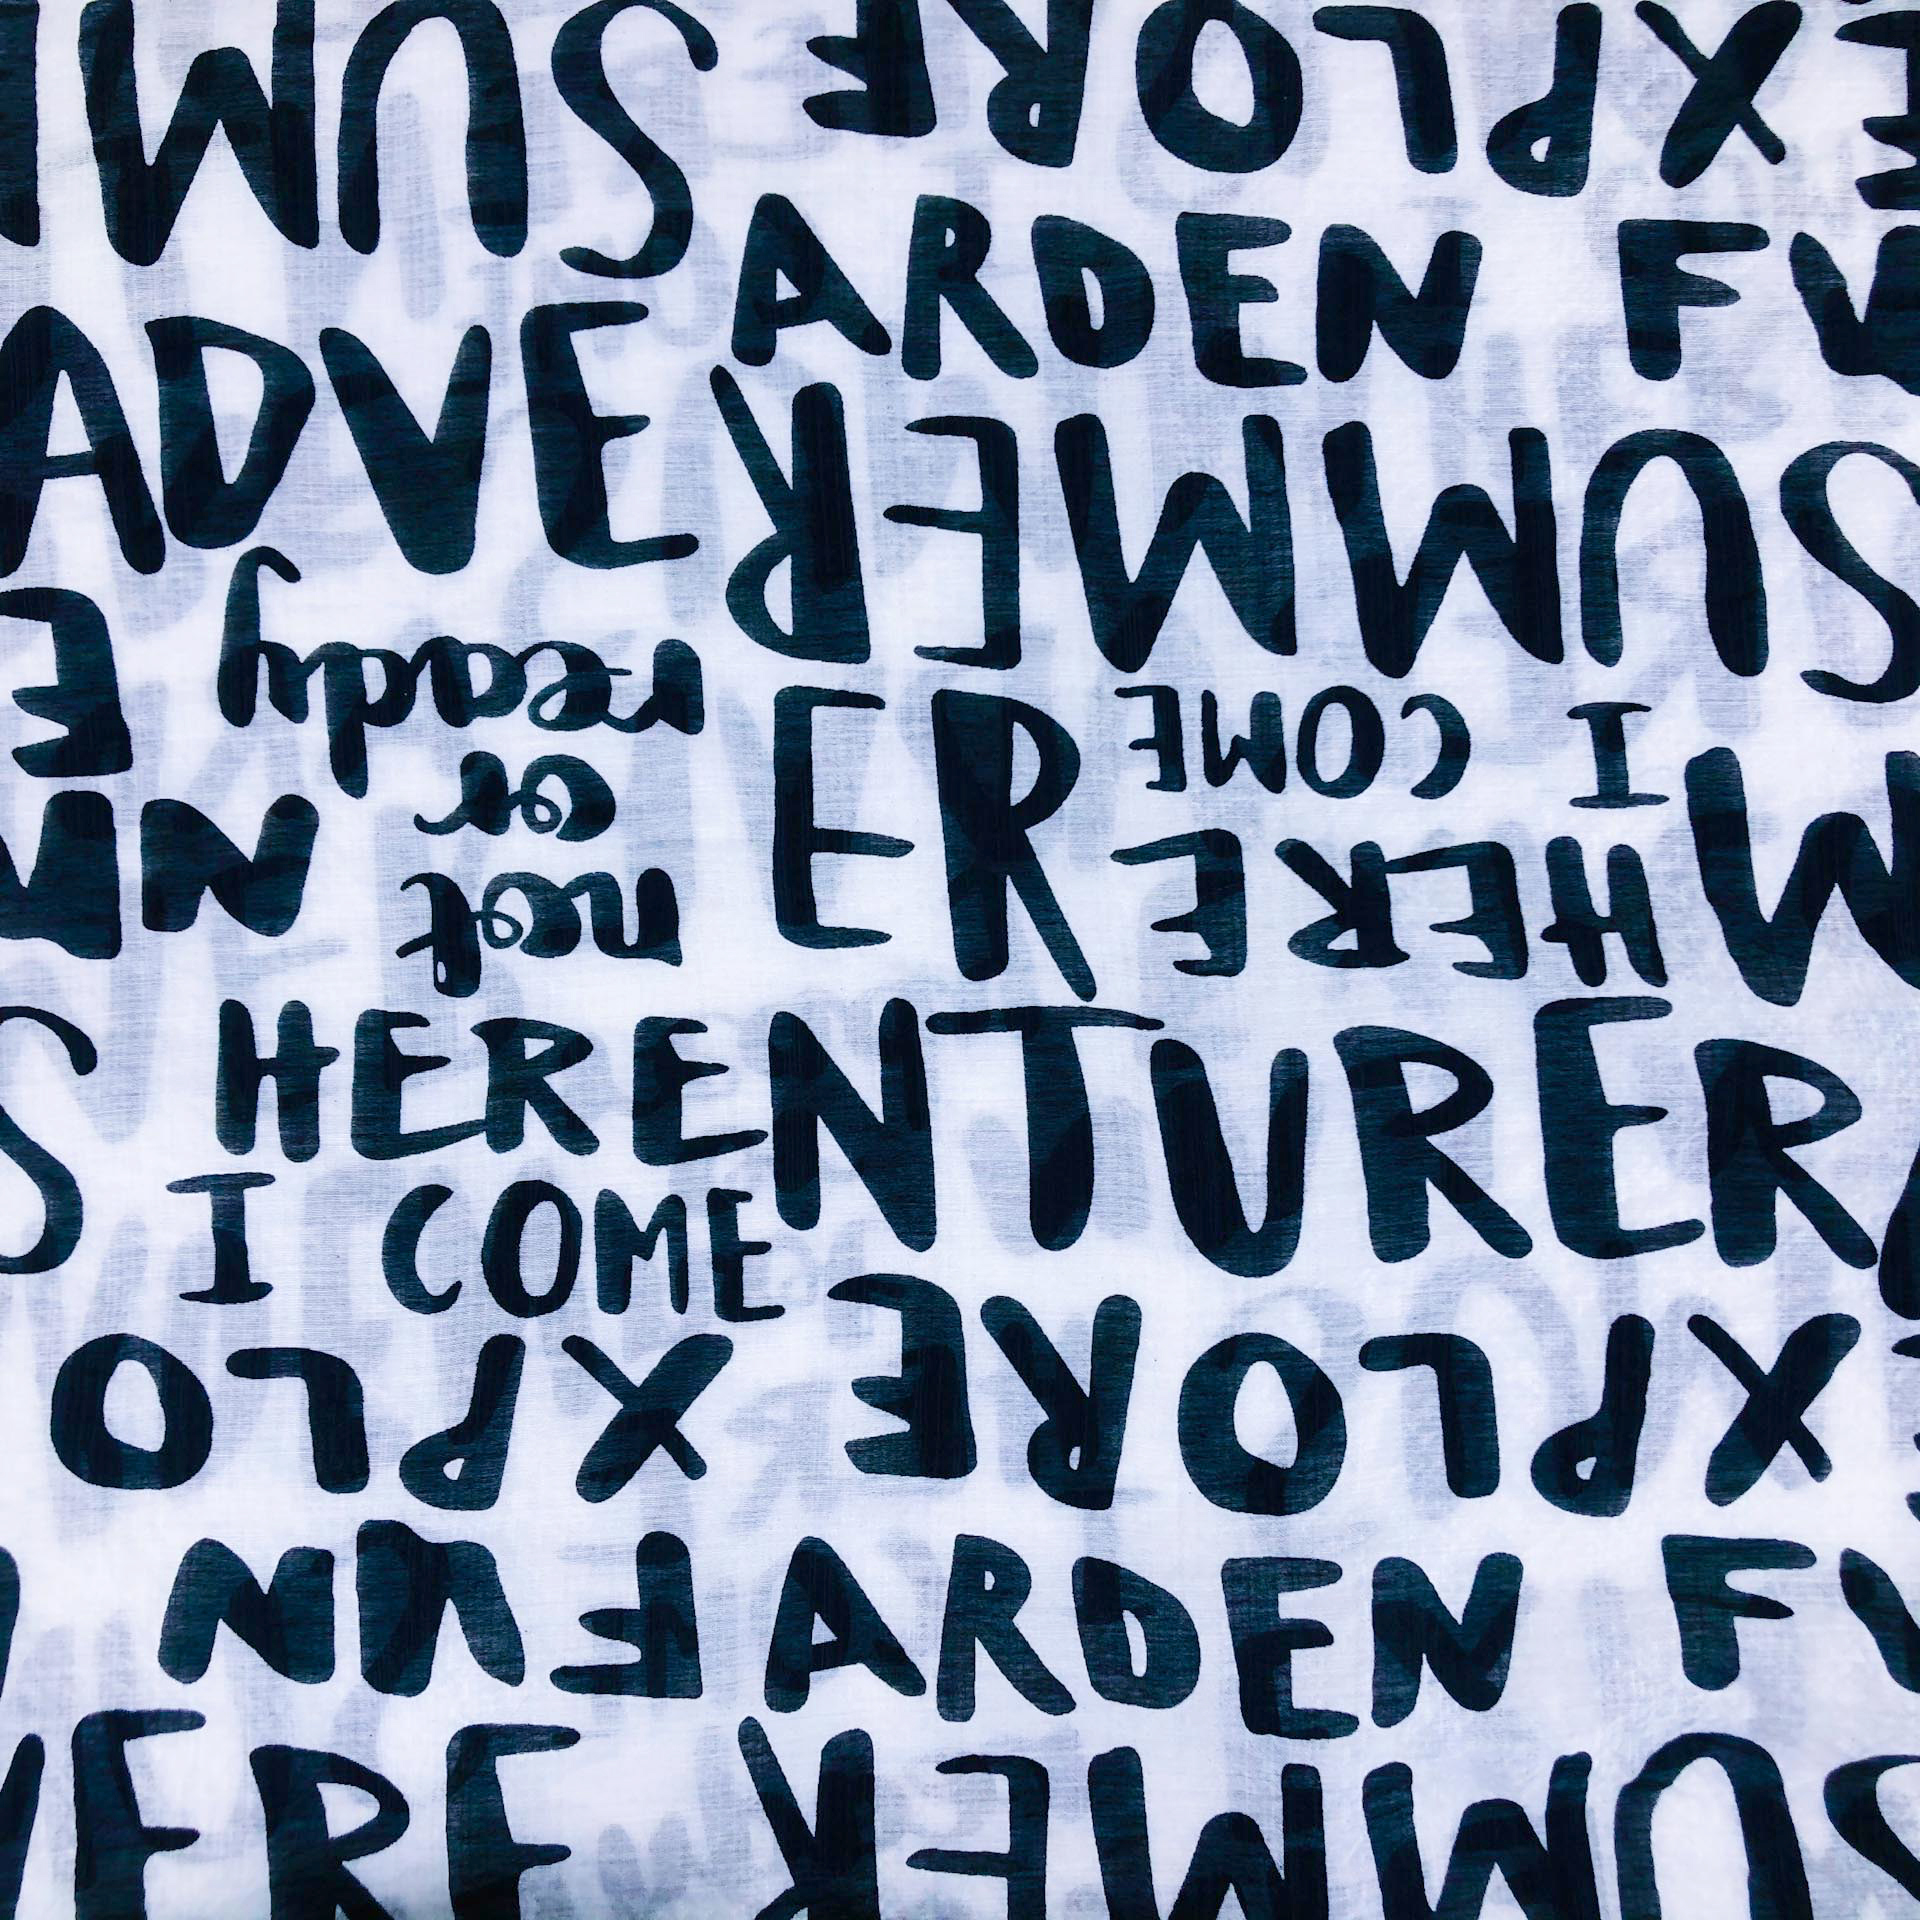 SUM
EXPLORE
ARDEN F
ADVE
SUMMER
ready
or
not
ER
I COME
HERE
HERE
NTURER
I COME
XPLO
EXPLORE
FUN
ARDEN F
ERE
SUMMER